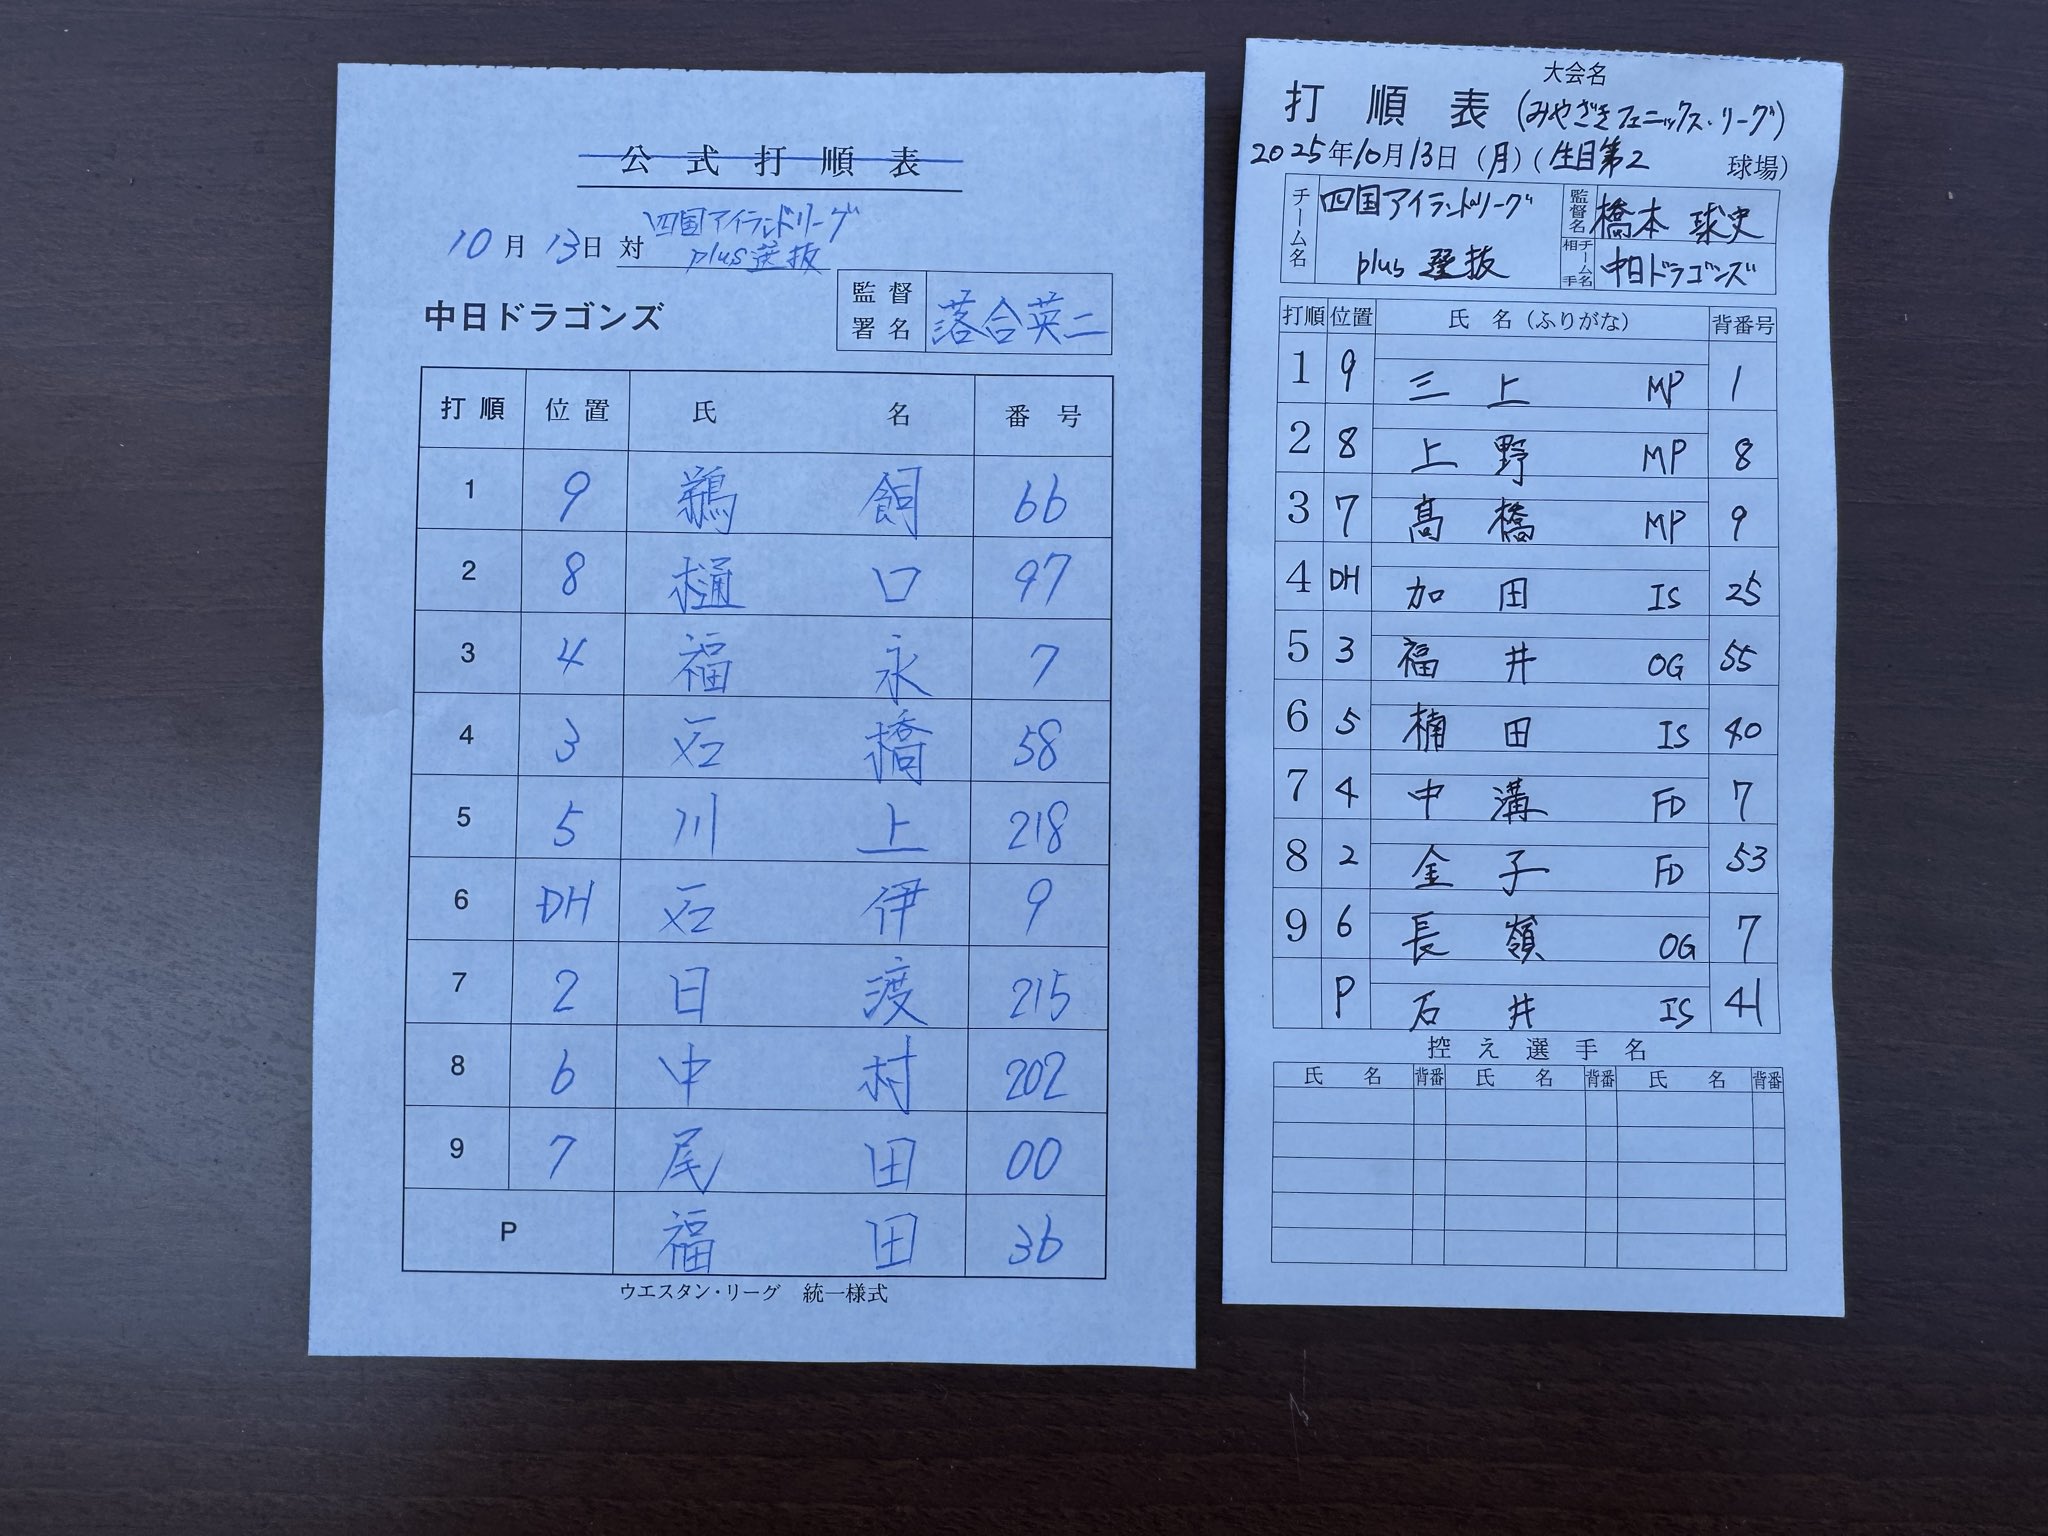 公式打順表
10月13日 対 四国アイランドリーグ
plus選抜
中日ドラゴンズ
監督署名 落合英二
打順 位置 氏名 番号
1 9 鵜飼 66
2 8 樋口 97
3 4 福永 7
4 3 石橋 58
5 5 川上 218
6 DH 石伊 9
7 2 日渡 215
8 6 中村 202
9 7 尾田 00
P 福田 36
ウエスタン・リーグ 統一様式
大会名
打順表 (みやざきフェニックス・リーグ)
2025年10月13日(月)(生目第2球場)
チーム名 四国アイランドリーグ
plus 選抜
監督名 橋本 球史
相手チーム名 中日ドラゴンズ
打順 位置 氏名(ふりがな) 背番号
1 9 三上 MP 1
2 8 上野 MP 8
3 7 髙橋 MP 9
4 DH 加田 IS 25
5 3 福井 OG 55
6 5 楠田 IS 40
7 4 中溝 FD 7
8 2 金子 FD 53
9 6 長嶺 OG 7
P 石井 IS 41
控え選手名
氏名 背番 氏名 背番 氏名 背番